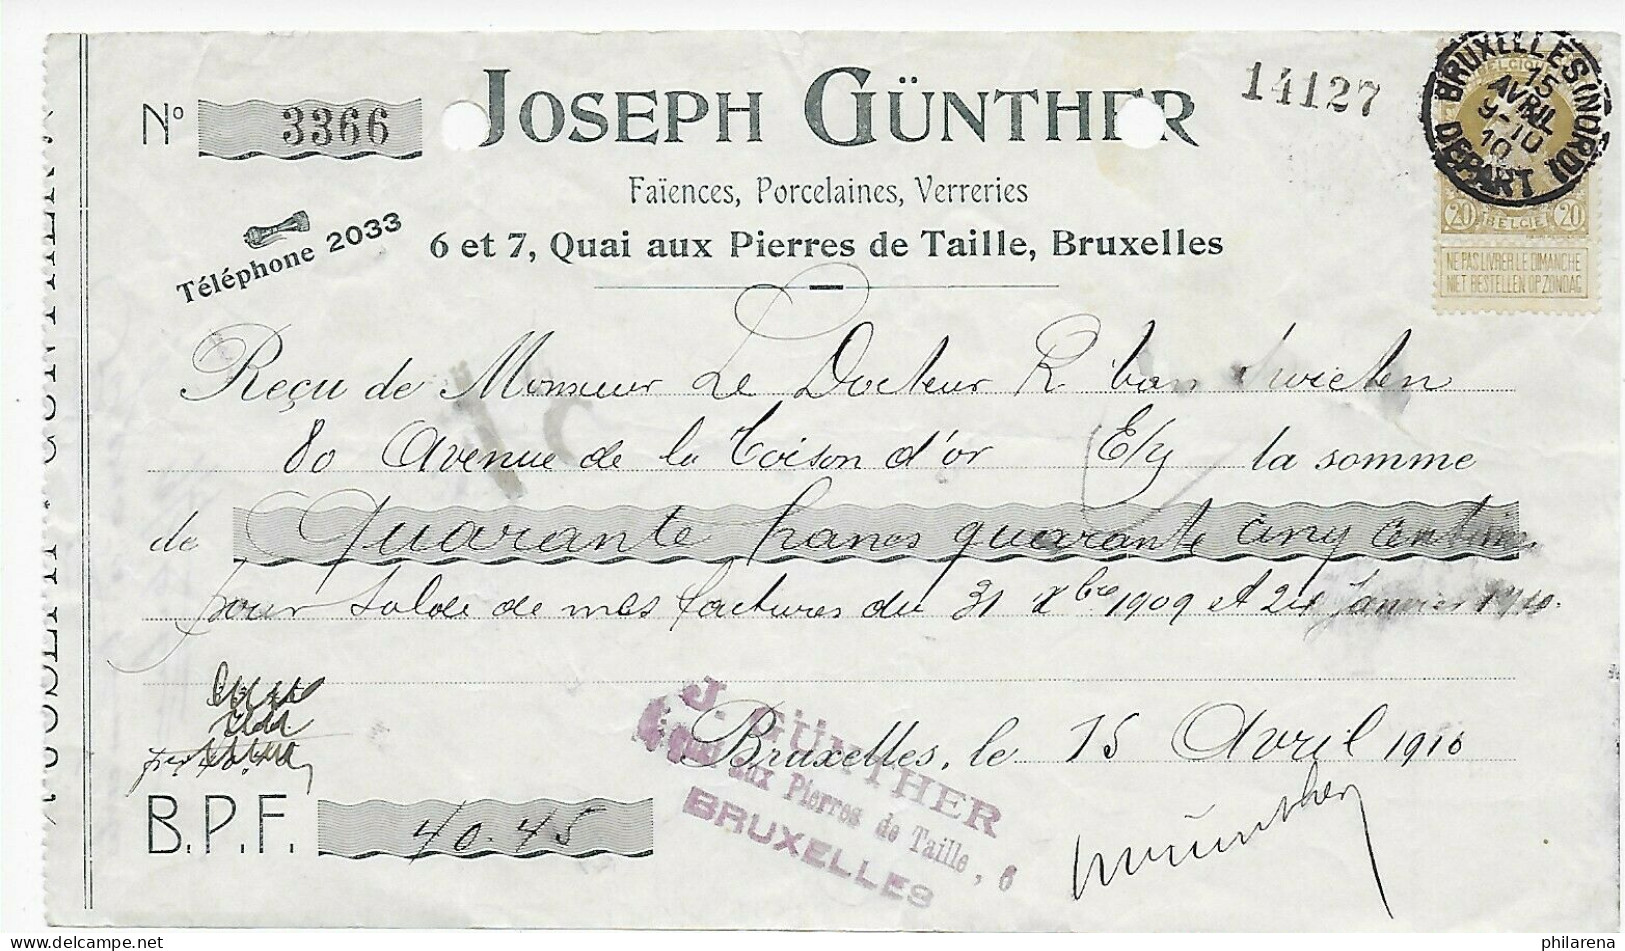 Nº 3366
JOSEPH GÜNTHER
14127
BRUXELLES (NORD)
15
AVRIL
9-10
10
DEPART
BELGIQUE
20 BELGIË 20
NE PAS LIVRER LE DIMANCHE
NIET BESTELLEN OP ZONDAG
Faïences, Porcelaines, Verreries
Téléphone 2033
6 et 7, Quai aux Pierres de Taille, Bruxelles
Reçu de Monsieur Le Docteur R. Van Swieten
80 Avenue de la Toison d'or E/y la somme
de Quarante francs quarante cinq centimes
pour solde de mes factures du 31 Xbre 1909 et 24 Janvier 1910.
Bruxelles, le 15 Avril 1910
J. GÜNTHER
aux Pierres de Taille, 6
BRUXELLES
B.P.F. 40.45
Günther
philarena.com